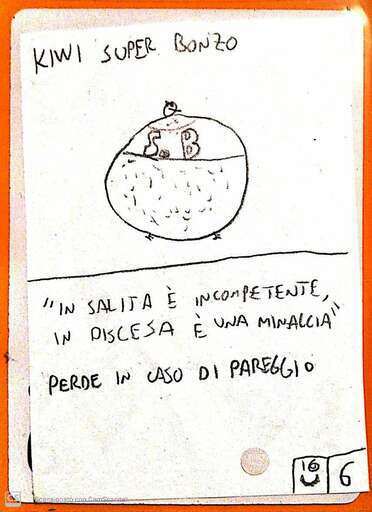 KIWI SUPER BONZO
S. B
"IN SALITA È INCOMPETENTE,
IN DISCESA È UNA MINACCIA"
PERDE IN CASO DI PAREGGIO
16
6
Scansionato con CamScanner